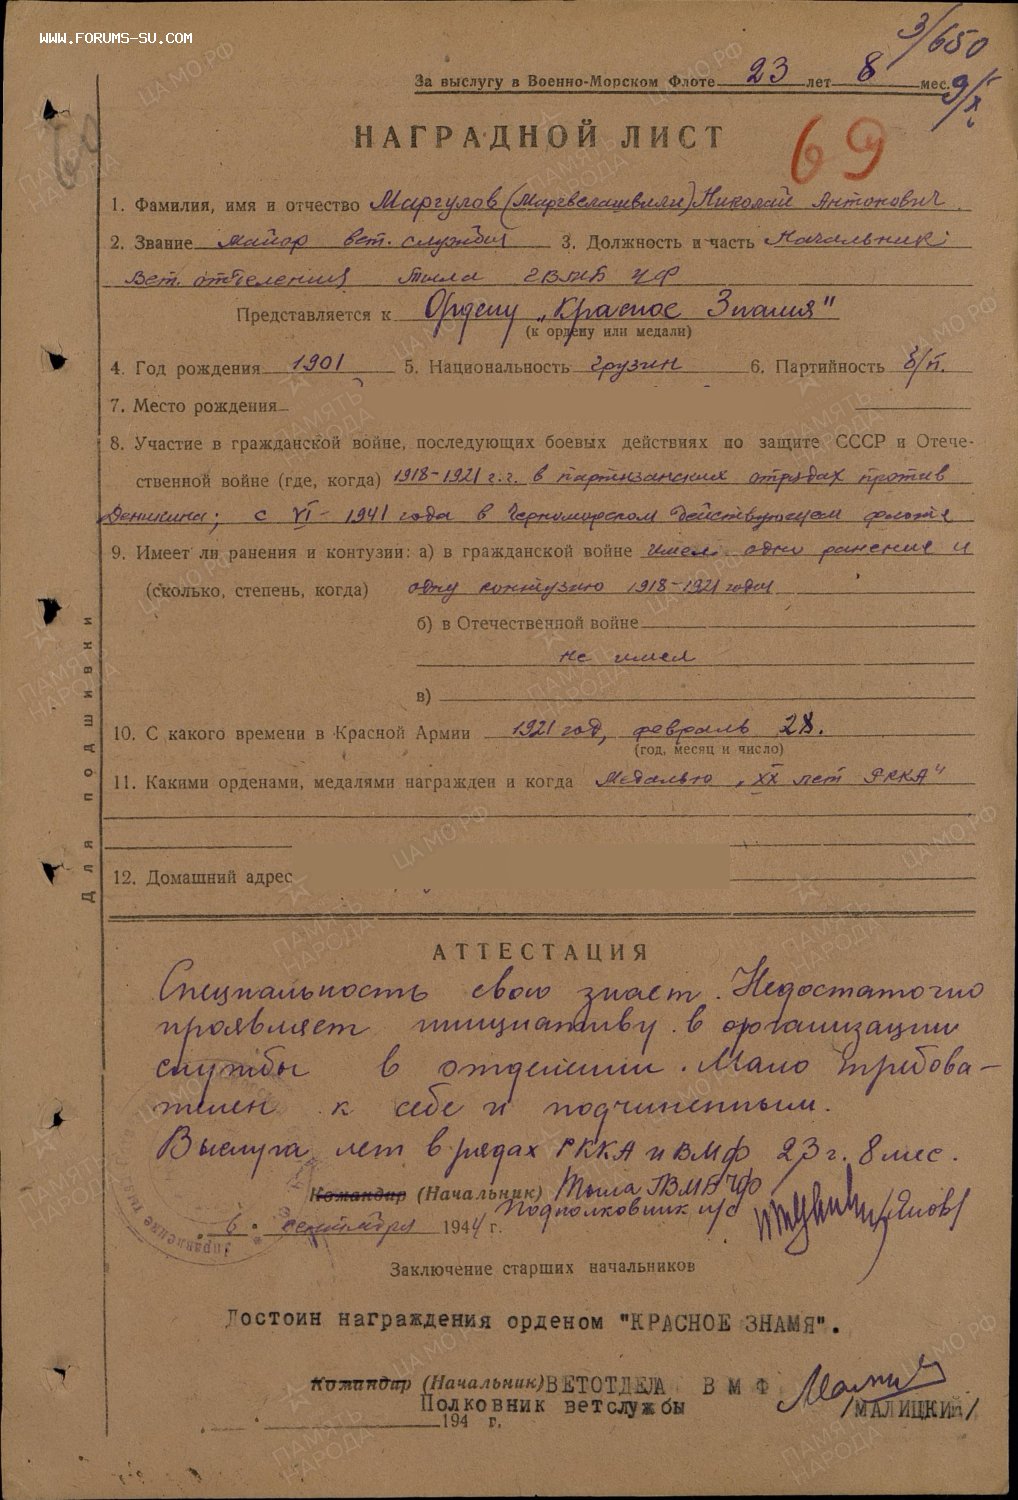 www.forums-su.com
3/650
9/X
За выслугу в Военно-Морском Флоте 23 лет 8 мес.
НАГРАДНОЙ ЛИСТ
69
1. Фамилия, имя и отчество Маргулов (Маргвелашвили) Николай Антонович
2. Звание майор вет. службы 3. Должность и часть Начальник
Вет. отделения тыла ГВМБ ЧФ
Представляется к Ордену „Красное Знамя"
(к ордену или медали)
4. Год рождения 1901 5. Национальность грузин 6. Партийность б/п.
7. Место рождения
8. Участие в гражданской войне, последующих боевых действиях по защите СССР и Отече-
ственной войне (где, когда) 1918-1921 г.г. в партизанских отрядах против
Деникина; с VI - 1941 года в Черноморском действующем флоте
9. Имеет ли ранения и контузии: а) в гражданской войне имел одно ранение и
(сколько, степень, когда) одну контузию 1918-1921 годы
б) в Отечественной войне
не имел
в)
10. С какого времени в Красной Армии 1921 год, февраль 28.
(год, месяц и число)
11. Какими орденами, медалями награжден и когда Медалью „XX лет РККА"
12. Домашний адрес
Для подшивки
АТТЕСТАЦИЯ
Специальность свою знает. Недостаточно
проявляет инициативу в организации
службы в отделении. Мало требова-
телен к себе и подчиненным.
Выслуга лет в рядах РККА и ВМФ 23 г. 8 мес.
Командир (Начальник) Тыла ГВМБ ЧФ
Подполковник и/с
/Янов/
6. сентября 1944 г.
Заключение старших начальников
Достоин награждения орденом "КРАСНОЕ ЗНАМЯ".
Командир (Начальник) ВЕТОТДЕЛА ВМФ
Полковник ветслужбы
/МАЛИЦКИЙ/
194 г.